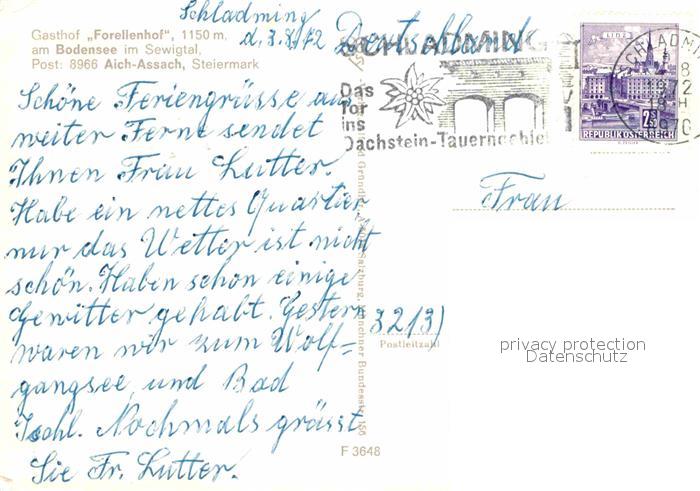 Gasthof „Forellenhof", 1150 m.
am Bodensee im Sewigtal,
Post: 8966 Aich-Assach, Steiermark
Schladming
d. 3.8.72
Deutschland
Schöne Feriengrüsse aus
weiter Ferne sendet
Ihnen Frau Lutter.
Habe ein nettes Quartier
nur das Wetter ist nicht
schön. Haben schon einige
Gewitter gehabt. Gestern
waren wir zum Wolf=
gangsee und Bad
Ischl. Nochmals grüsst
Sie Fr. Lutter.
SCHLADMING
Das
Tor
ins
Dachstein-Tauerngebiet
LINZ
2S50
REPUBLIK ÖSTERREICH
SCHLADMING
Frau
3213)
Postleitzahl
privacy protection
Datenschutz
Salzburg, Münchner Bundesstr. 156
F 3648